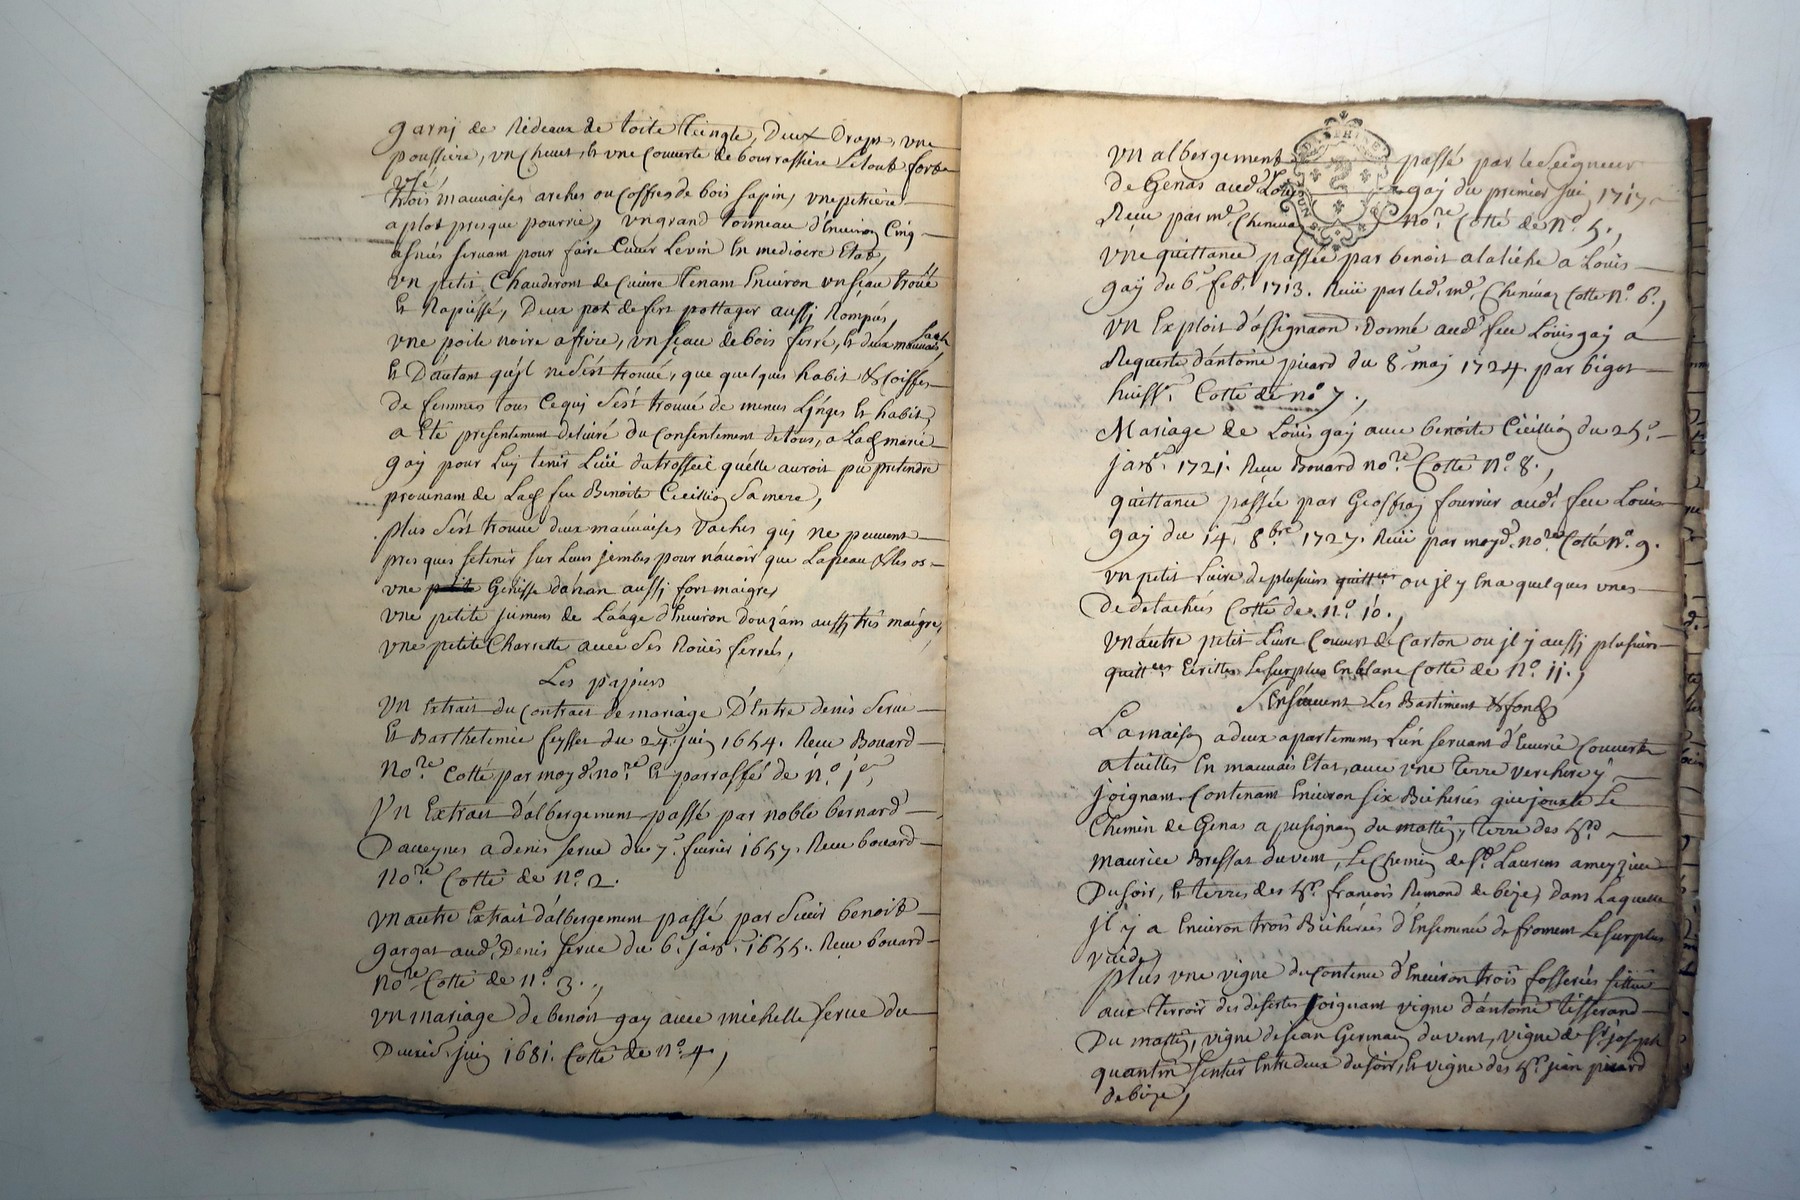 garnj de Rideaux de toile teingte, Deux Draps, une
poussiere, un Chevet, & une Couverte de bourrassiere Le tout fort
usé
trois mauvaises arches ou Coffres de bois sapin, une petriere
a plot presque pourrie, un grand tonneau d'Environ Cinq
asnées servant pour faire Cuver Le vin En mediocre Etat,
un petit Chauderont de Cuivre tenant Environ un seau troué
Et Rapiessé, Deux pot de fert pottager aussj Rompus,
une poile noire a frire, un seau de bois ferré, & deux mauvais
Sacs
Et D'autant qu'jl ne S'est trouvé, que quelques habit & Coiffes
de femmes tous Ce quj S'est trouvé de menus Linges Et habit,
a Eté presentement delivré du Consentement de tous, a Lad marie
gay pour Luj tenir Lieu du trosseil qu'elle auroit pu pretendre
provenant de Lad feu Benoite Cieillion Sa mere,
plus S'est trouvé deux mauvaises vaches quj ne peuvent
presques se tenir sur Leurs jembes pour n'avoir que La peau & les os
une petite Genisse d'un an aussj fort maigre,
une petite jument de L'aage d'Environ douz ans aussj très maigre,
une petite Charrette avec Ses Roües ferrées,
Les papiers
un Extrait du Contrait de mariage D'Entre denis Serve
Et Barthelemie feysset du 24e juin 1654. Receu Bouard
No.re Cotté par moyd. no.re Et parraffé de n.o 1er,
un Extrait d'albergement passé par noble bernard
Daveynes a denis Serve du 7.e fevrier 1657. Receu bouard
No.re Cotté de N.o 2.
un autre Extrait d'albergement passé par Sieur benoit
gargat aud. Denis Serve du 6.e janv. 1655. Receu bouard
No.re Cotté de n.o 3.,
un mariage de benoit gay avec michelle Serve du
Juin 1681. Cotté de n.o 4,
un albergement passé par le Seigneur
de Genas aud. Louis gaj du premier Juin 1717
Receu par m.e Chenevaz No.re Cotté de n.o 5.,
une quittance passée par benoit alaliche a Louis
gaj du 6e feb. 1713. Receu par led. m.e Chenevaz Cotté N.o 6.,
un Exploit d'assignaon donné aud. feu Louis gaj a
Requeste d'antoine picard du 8e maj 1724. par bigot
huiss.r Cotté de no 7.,
Mariage de Louis gaj avec benoite Cieillion du 25e
janv. 1721. Receu Bouard no.re Cotté N.o 8.,
quittance passée par Geoffraj fourrier aud. feu Louis
gaj du 14e 8bre 1727. Receu par moyd. no.re Cotté N.o 9.
un petit Livre de plusieurs quitt.ces ou jl y En a quelques unes
De detachés Cotté de N.o 10.,
un autre petit Livre Couvert de Carton ou jl y aussj plusieurs
quitt.ces Ecrittes Le surplus En blanc Cotté de N.o 11.,
S'Ensuivent Les Bastiment & fonds
La maison a deux apartement, L'un servant d'Ecurie Couverte
a tuilles En mauvais Etat, avec une terre verchere y
joignant Contenant Environ six Bicherées que jouxte Le
Chemin de Genas a pusignan du matin, terre des h.rs
maurice Bressat du vent, Le Chemin de St. Laurens a meyzieu
Du soir, Et terres des h.rs françois Remond de bize, dans Laquelle
Jl y a Environ trois Bicherées d'Enseminée de froment Le surplus
vuide,
plus une vigne du Contenu d'Environ trois fosserées sittué
aux terroir des desertes joignant vigne d'antoine tisserand
Du matin, vigne de jean Germain du vent, vigne de Sr joseph
quantin sentier Entre deux du soir, & vigne des h.rs jean picard
de bize,